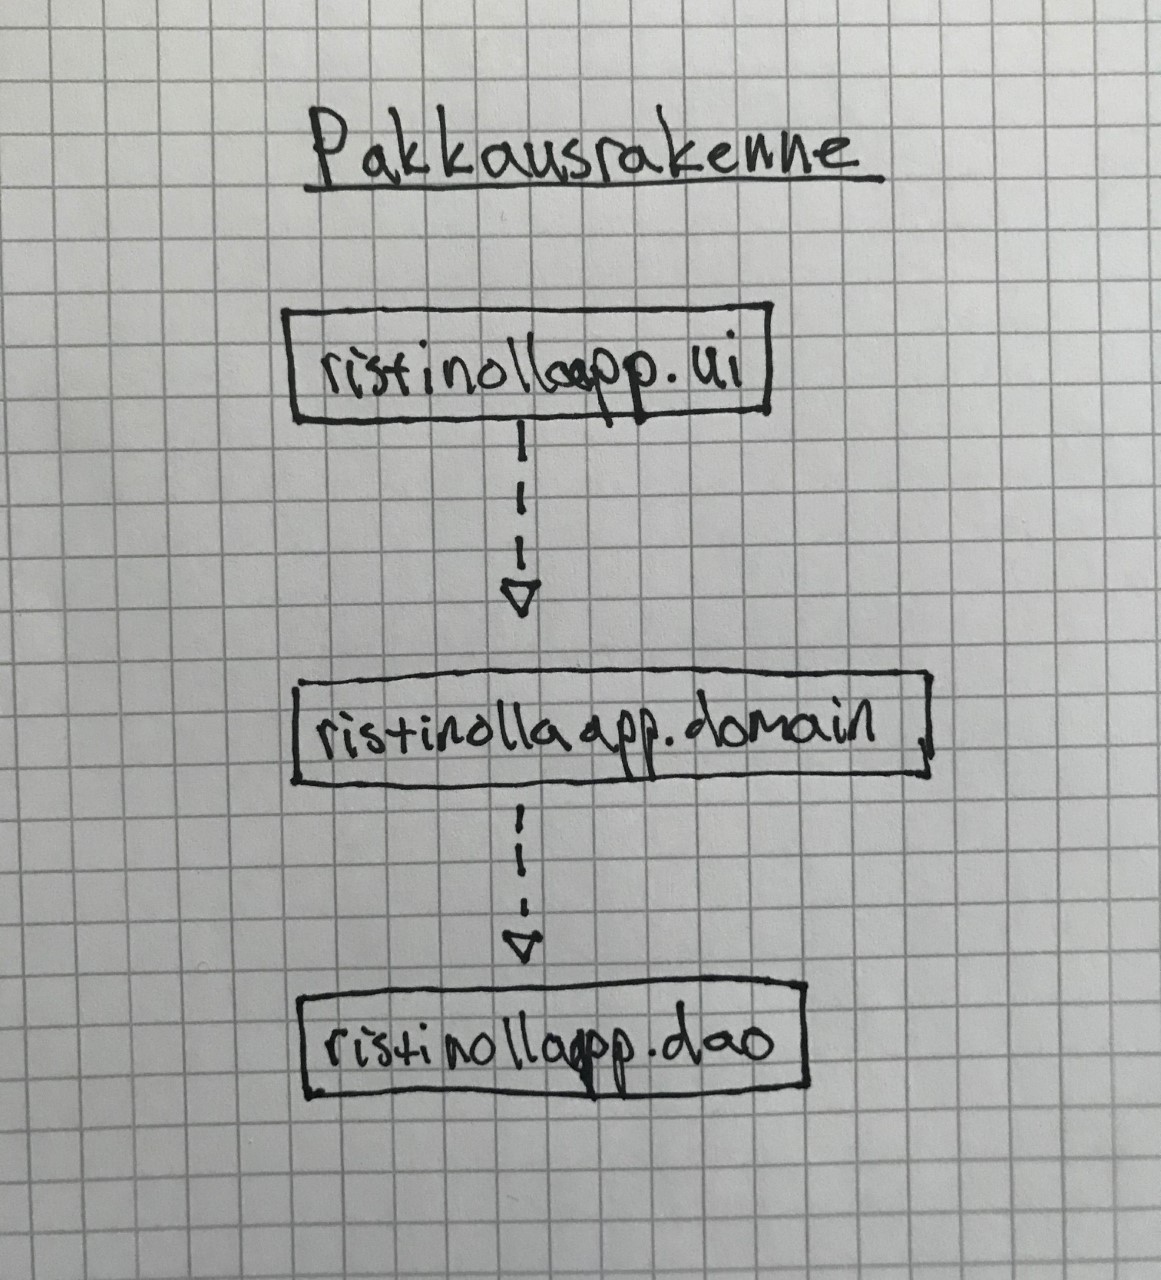 Pakkausrakenne
ristinollaapp.ui
ristinollaapp.domain
ristinollaapp.dao